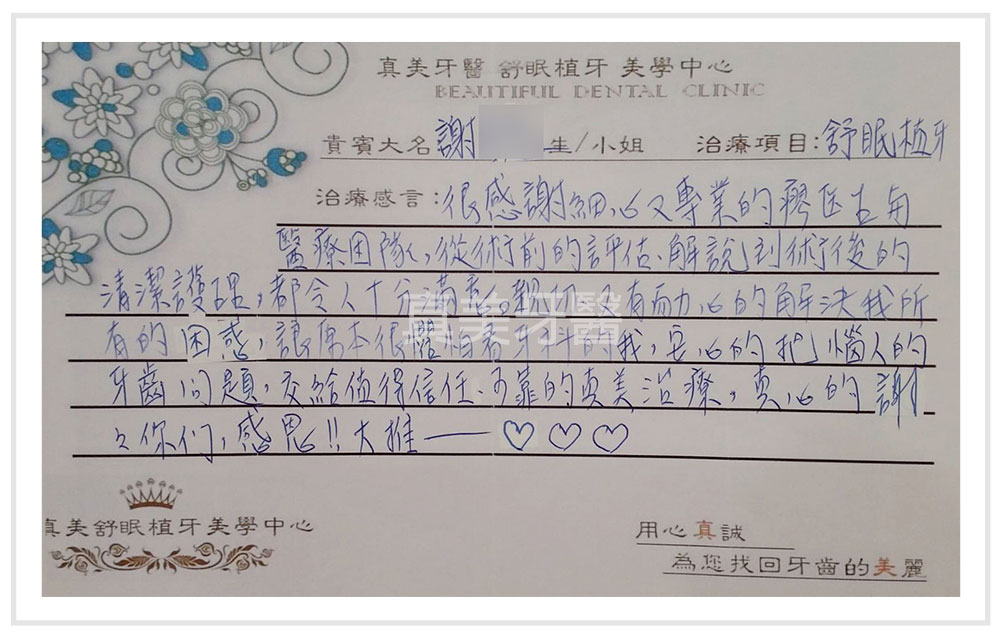 真美牙醫 舒眠植牙 美學中心
BEAUTIFUL DENTAL CLINIC
貴賓大名 謝 生/小姐 治療項目:舒眠植牙
治療感言:很感謝細心又專業的廖医古与
醫療团隊,從術前的評估、解說到術後的
清潔護理,都令人十分滿意。親切又有耐心的解決我所
有的困惑,讓原本很害怕看牙科的我,安心的把惱人的
牙齒问題,交給值得信任、可靠的真美治療,真心的謝
々你们,感恩!!大推——♡♡♡
真美牙醫
真美舒眠植牙美學中心
用心真誠
為您找回牙齒的美麗